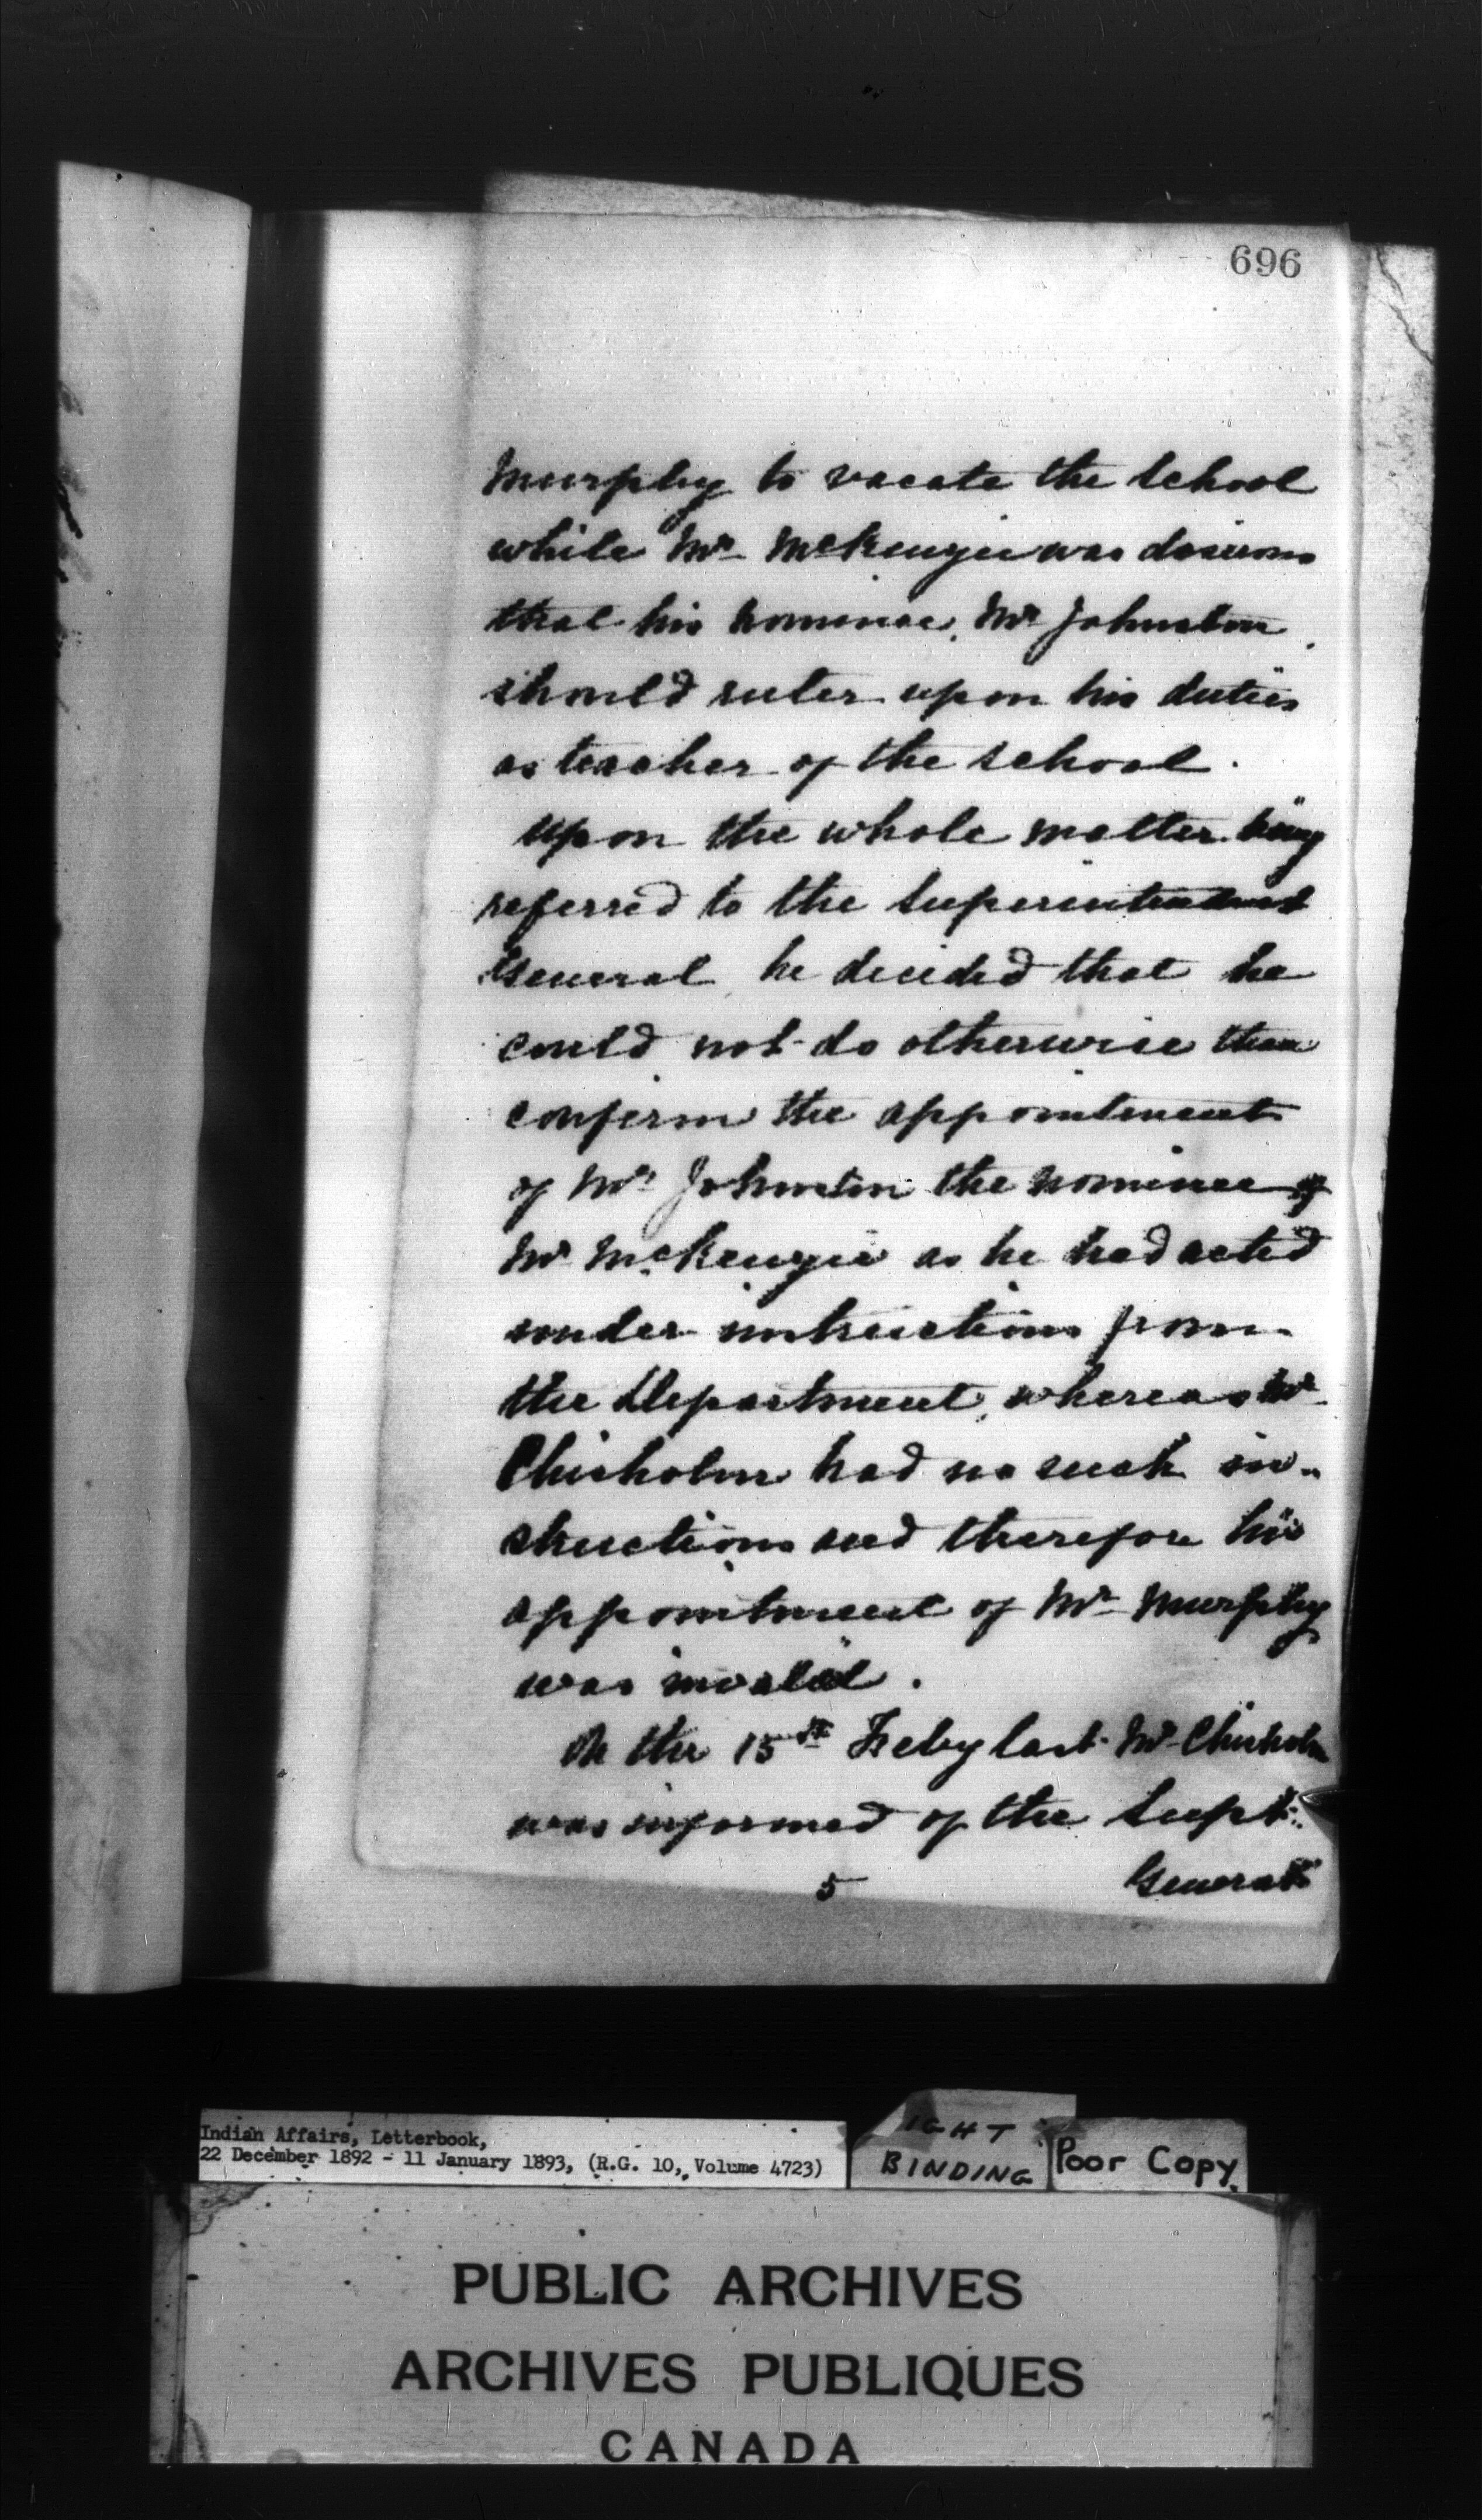 696
Murphy to vacate the School
while Mr McKenzie was desirous
that his nominee, Mr Johnston,
should enter upon his duties
as teacher of the school.
Upon the whole matter being
referred to the Superintendent
General, he decided that he
could not do otherwise than
confirm the appointment
of Mr Johnston the nominee of
Mr McKenzie as he had acted
under instructions from
the Department, whereas Mr
Chisholm had no such in-
structions and therefore his
appointment of Mr Murphy
was invalid.
On the 15th Feby last Mr Chisholm
was informed of the Supt.
5 General's
Indian Affairs, Letterbook,
22 December 1892 - 11 January 1893, (R.G. 10, Volume 4723)
IGHT
BINDING
Poor Copy.
PUBLIC ARCHIVES
ARCHIVES PUBLIQUES
CANADA